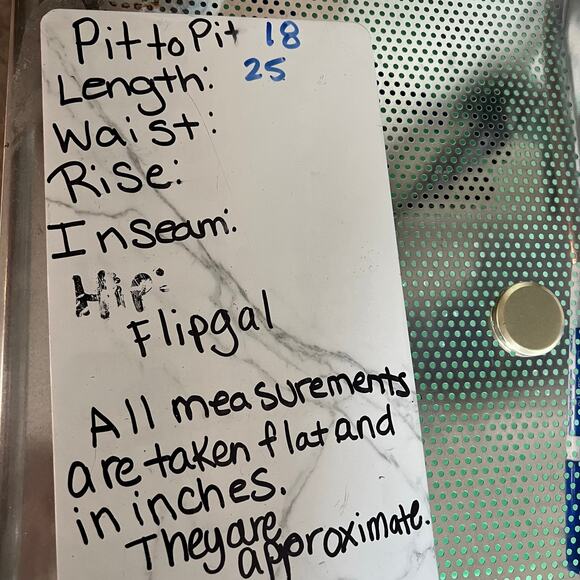 Pit to Pit 18
Length: 25
Waist:
Rise:
Inseam:
Hip:
Flipgal
All measurements
are taken flat and
in inches.
They are
approximate.